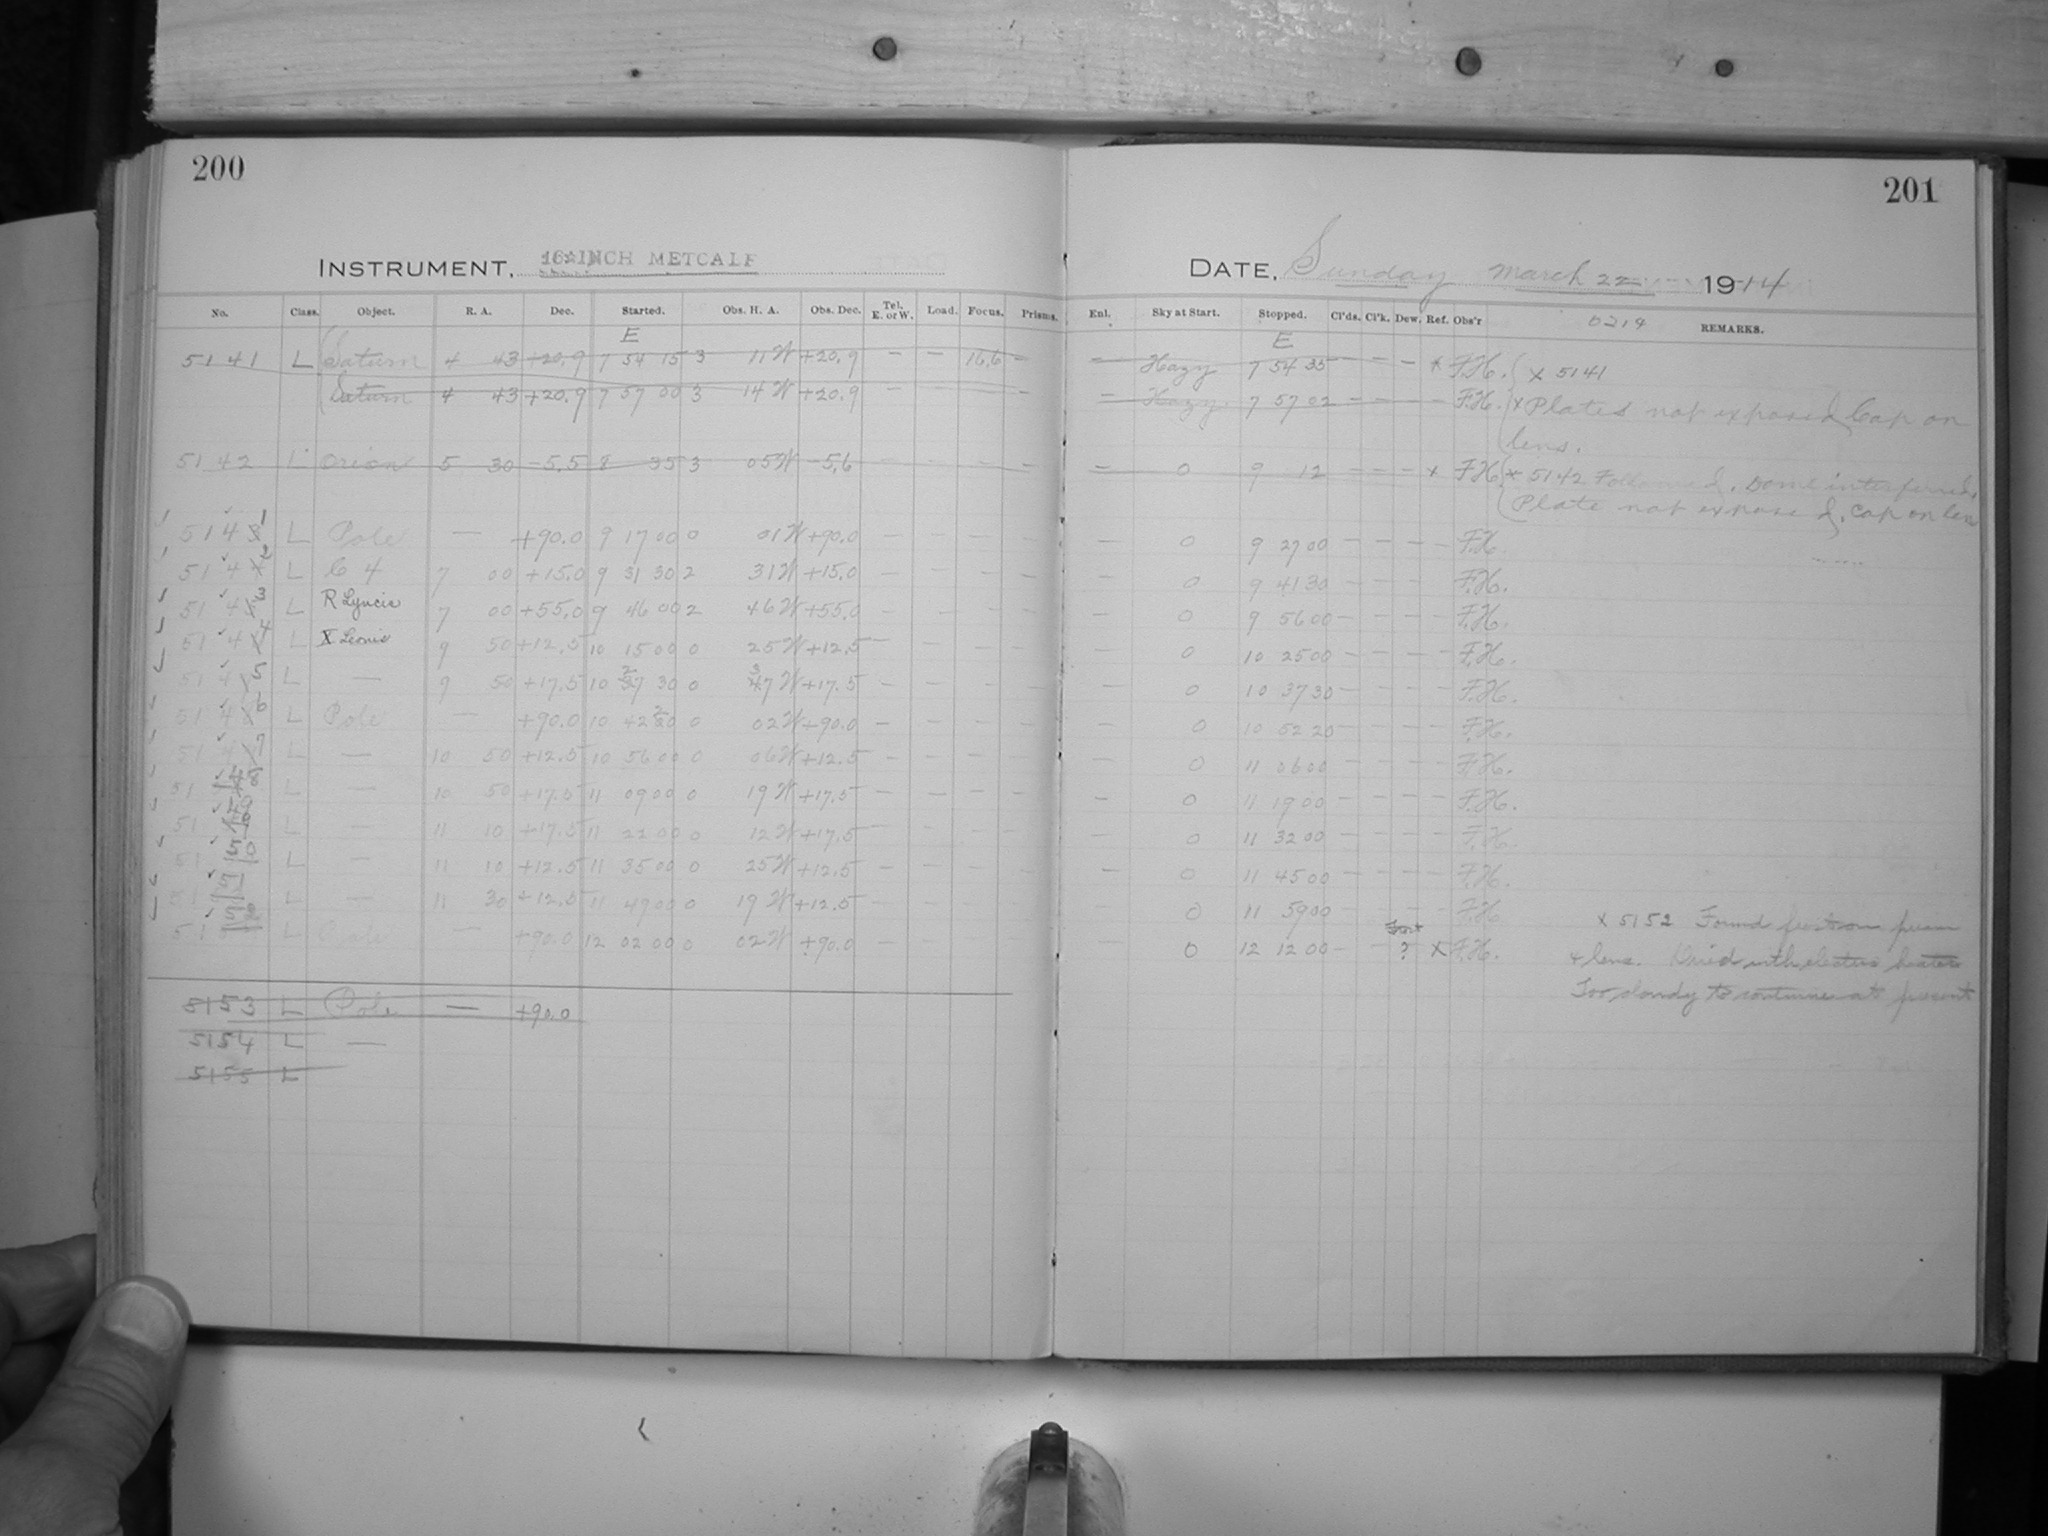 200
INSTRUMENT, 16 INCH METCALF
No. Class. Object. R. A. Dec. Started. Obs. H. A. Obs. Dec. Tel. E. or W. Load. Focus. Prisms.
E
5141 L Saturn 4 43 +20.9 7 54 15 3 11 W +20.9 — — 16.6 —
Saturn 4 43 +20.9 7 57 00 3 14 W +20.9 — — — —
5142 L Orion 5 30 -5.5 8 35 3 05 W -5.6 — — — —
514 1 L Pole — +90.0 9 17 00 0 01 W +90.0 — — — —
514 2 L C 4 7 00 +15.0 9 31 30 2 31 W +15.0 — — — —
514 3 L R Lyncis 7 00 +55.0 9 46 00 2 46 W +55.0 — — — —
514 4 L X Leonis 9 50 +12.5 10 15 00 0 25 W +12.5 — — — —
514 5 L — 9 50 +17.5 10 27 30 0 37 W +17.5 — — — —
514 6 L Pole — +90.0 10 42 20 0 02 W +90.0 — — — —
514 7 L — 10 50 +12.5 10 56 00 0 06 W +12.5 — — — —
514 8 L — 10 50 +17.5 11 09 00 0 19 W +17.5 — — — —
51 L — 11 10 +17.5 11 22 00 0 12 W +17.5 — — — —
51 L — 11 10 +12.5 11 35 00 0 25 W +12.5 — — — —
51 L — 11 30 +12.5 11 49 00 0 19 W +12.5 — — — —
51 L Pole — +90.0 12 02 00 0 02 W +90.0 — — — —
5153 L Pole — +90.0
5154 L —
5155 L
201
DATE, Sunday March 22 1914
Enl. Sky at Start. Stopped. Cl'ds. Cl'k. Dew. Ref. Obs'r 0219 REMARKS.
E
— Hazy 7 54 35 — — — x F.H. x 5141
— Hazy 7 57 02 — — — F.H. x Plates not exposed Cap on
lens.
— 0 9 12 — — — x F.H. x 5142 Followed. Dome interferred.
Plate not exposed, cap on lens
0 9 27 00 — — — — F.H.
— 0 9 41 30 — — — F.H.
— 0 9 56 00 — — — — F.H.
— 0 10 25 00 — — — — F.H.
— 0 10 37 30 — — — — F.H.
— 0 10 52 20 — — — — F.H.
— 0 11 06 00 — — — — F.H.
— 0 11 19 00 — — — — F.H.
— 0 11 32 00 — — — — F.H.
— 0 11 45 00 — — — — F.H.
0 11 59 00 — — — — F.H. x 5152 Found
0 12 12 00 — — ? X F.H. & lens. Dried with electric heater
Too cloudy to continue at present